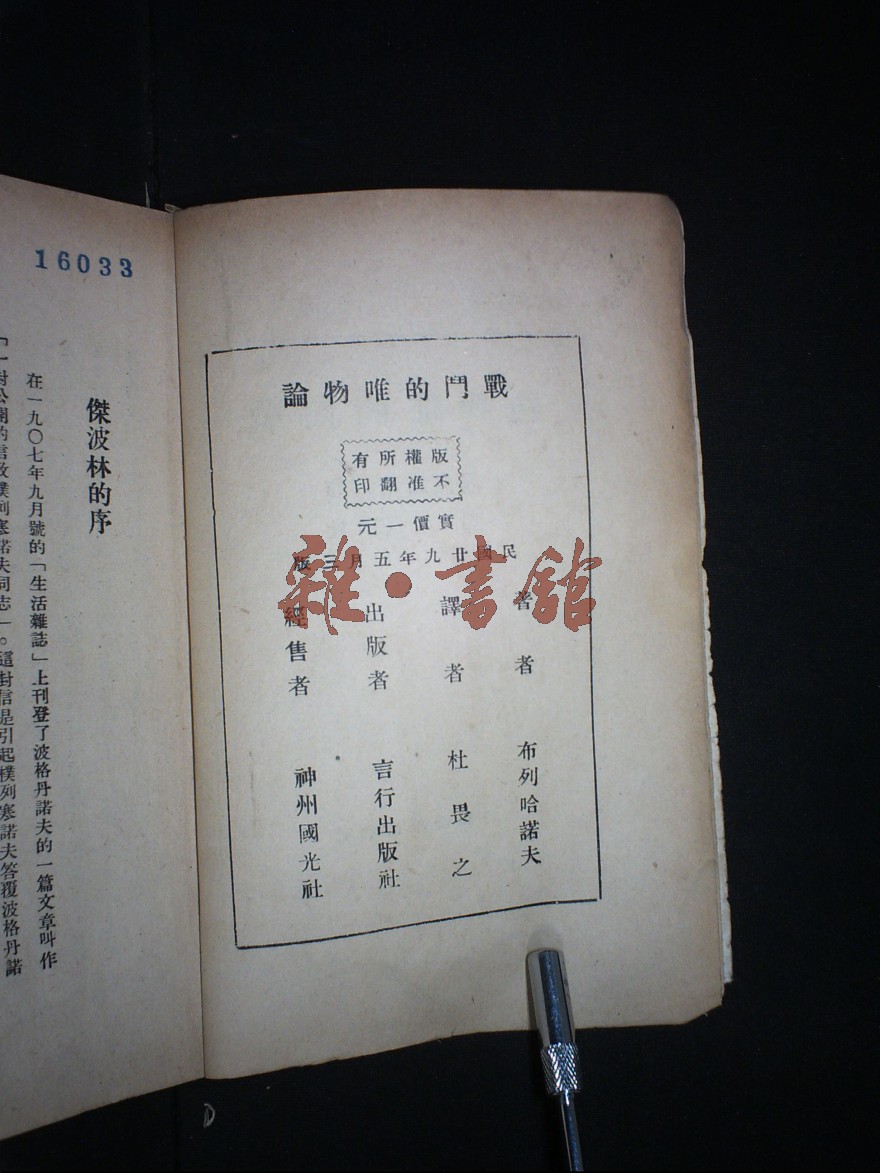 戰鬥的唯物論
版權所有
不准翻印
實價一元
民國廿九年五月三版
著者 布列哈諾夫
譯者 杜畏之
出版者 言行出版社
經售者 神州國光社
雜·書館
16033
傑波林的序
在一九〇七年九月號的「生活雜誌」上刊登了波格丹諾夫的一篇文章叫作
「一封公開的信致樸列寒諾夫同志」。這封信是引起樸列寒諾夫答覆波格丹諾